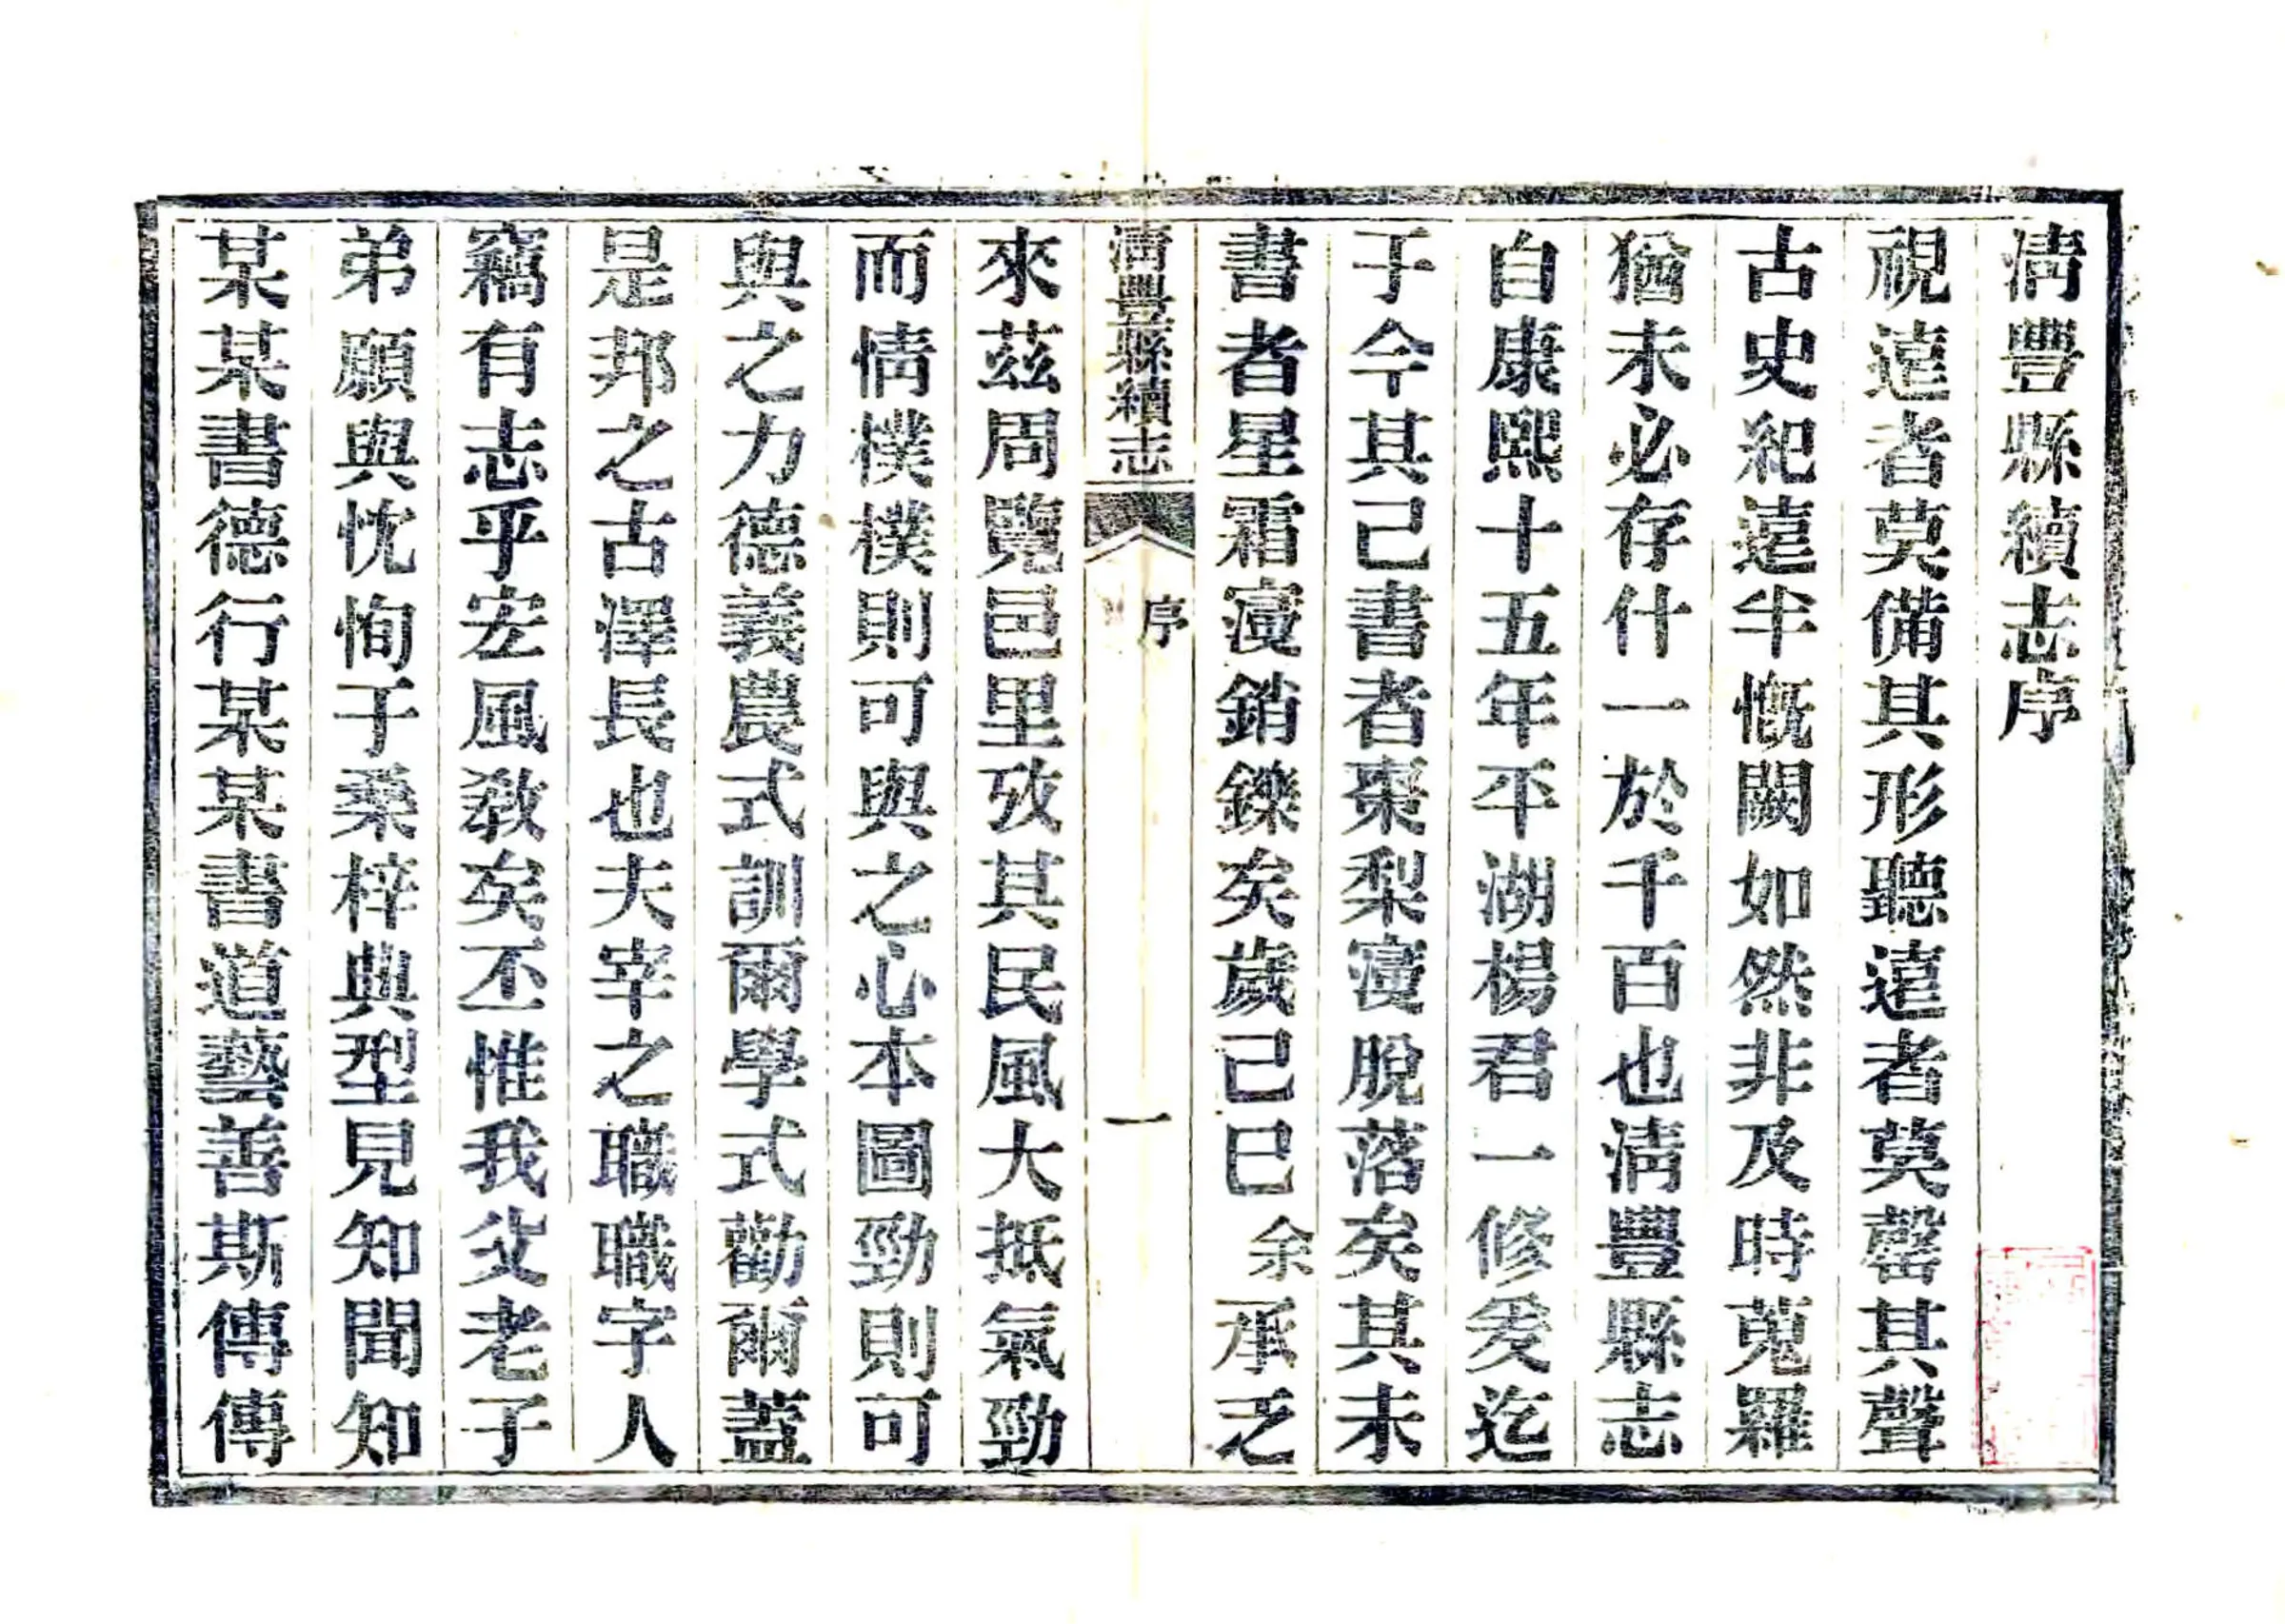 淸豐縣續志序
視遠者莫備其形聽遠者莫罄其聲
古史紀遠半慨闕如然非及時蒐羅
猶未必存什一於千百也淸豐縣志
自康熙十五年平湖楊君一修爰迄
于今其已書者棗梨寖脫落矣其未
書者星霜寖銷鑠矣歲己巳余承乏
淸豐縣續志
序
一
來茲周覽邑里攷其民風大抵氣勁
而情樸樸則可與之心本圖勁則可
與之力德義農式訓爾學式勸爾蓋
是邦之古澤長也夫宰之職職字人
竊有志乎宏風敎矣丕惟我父老子
弟願與忱恂于桑梓典型見知聞知
某某書德行某某書道藝善斯傳傳